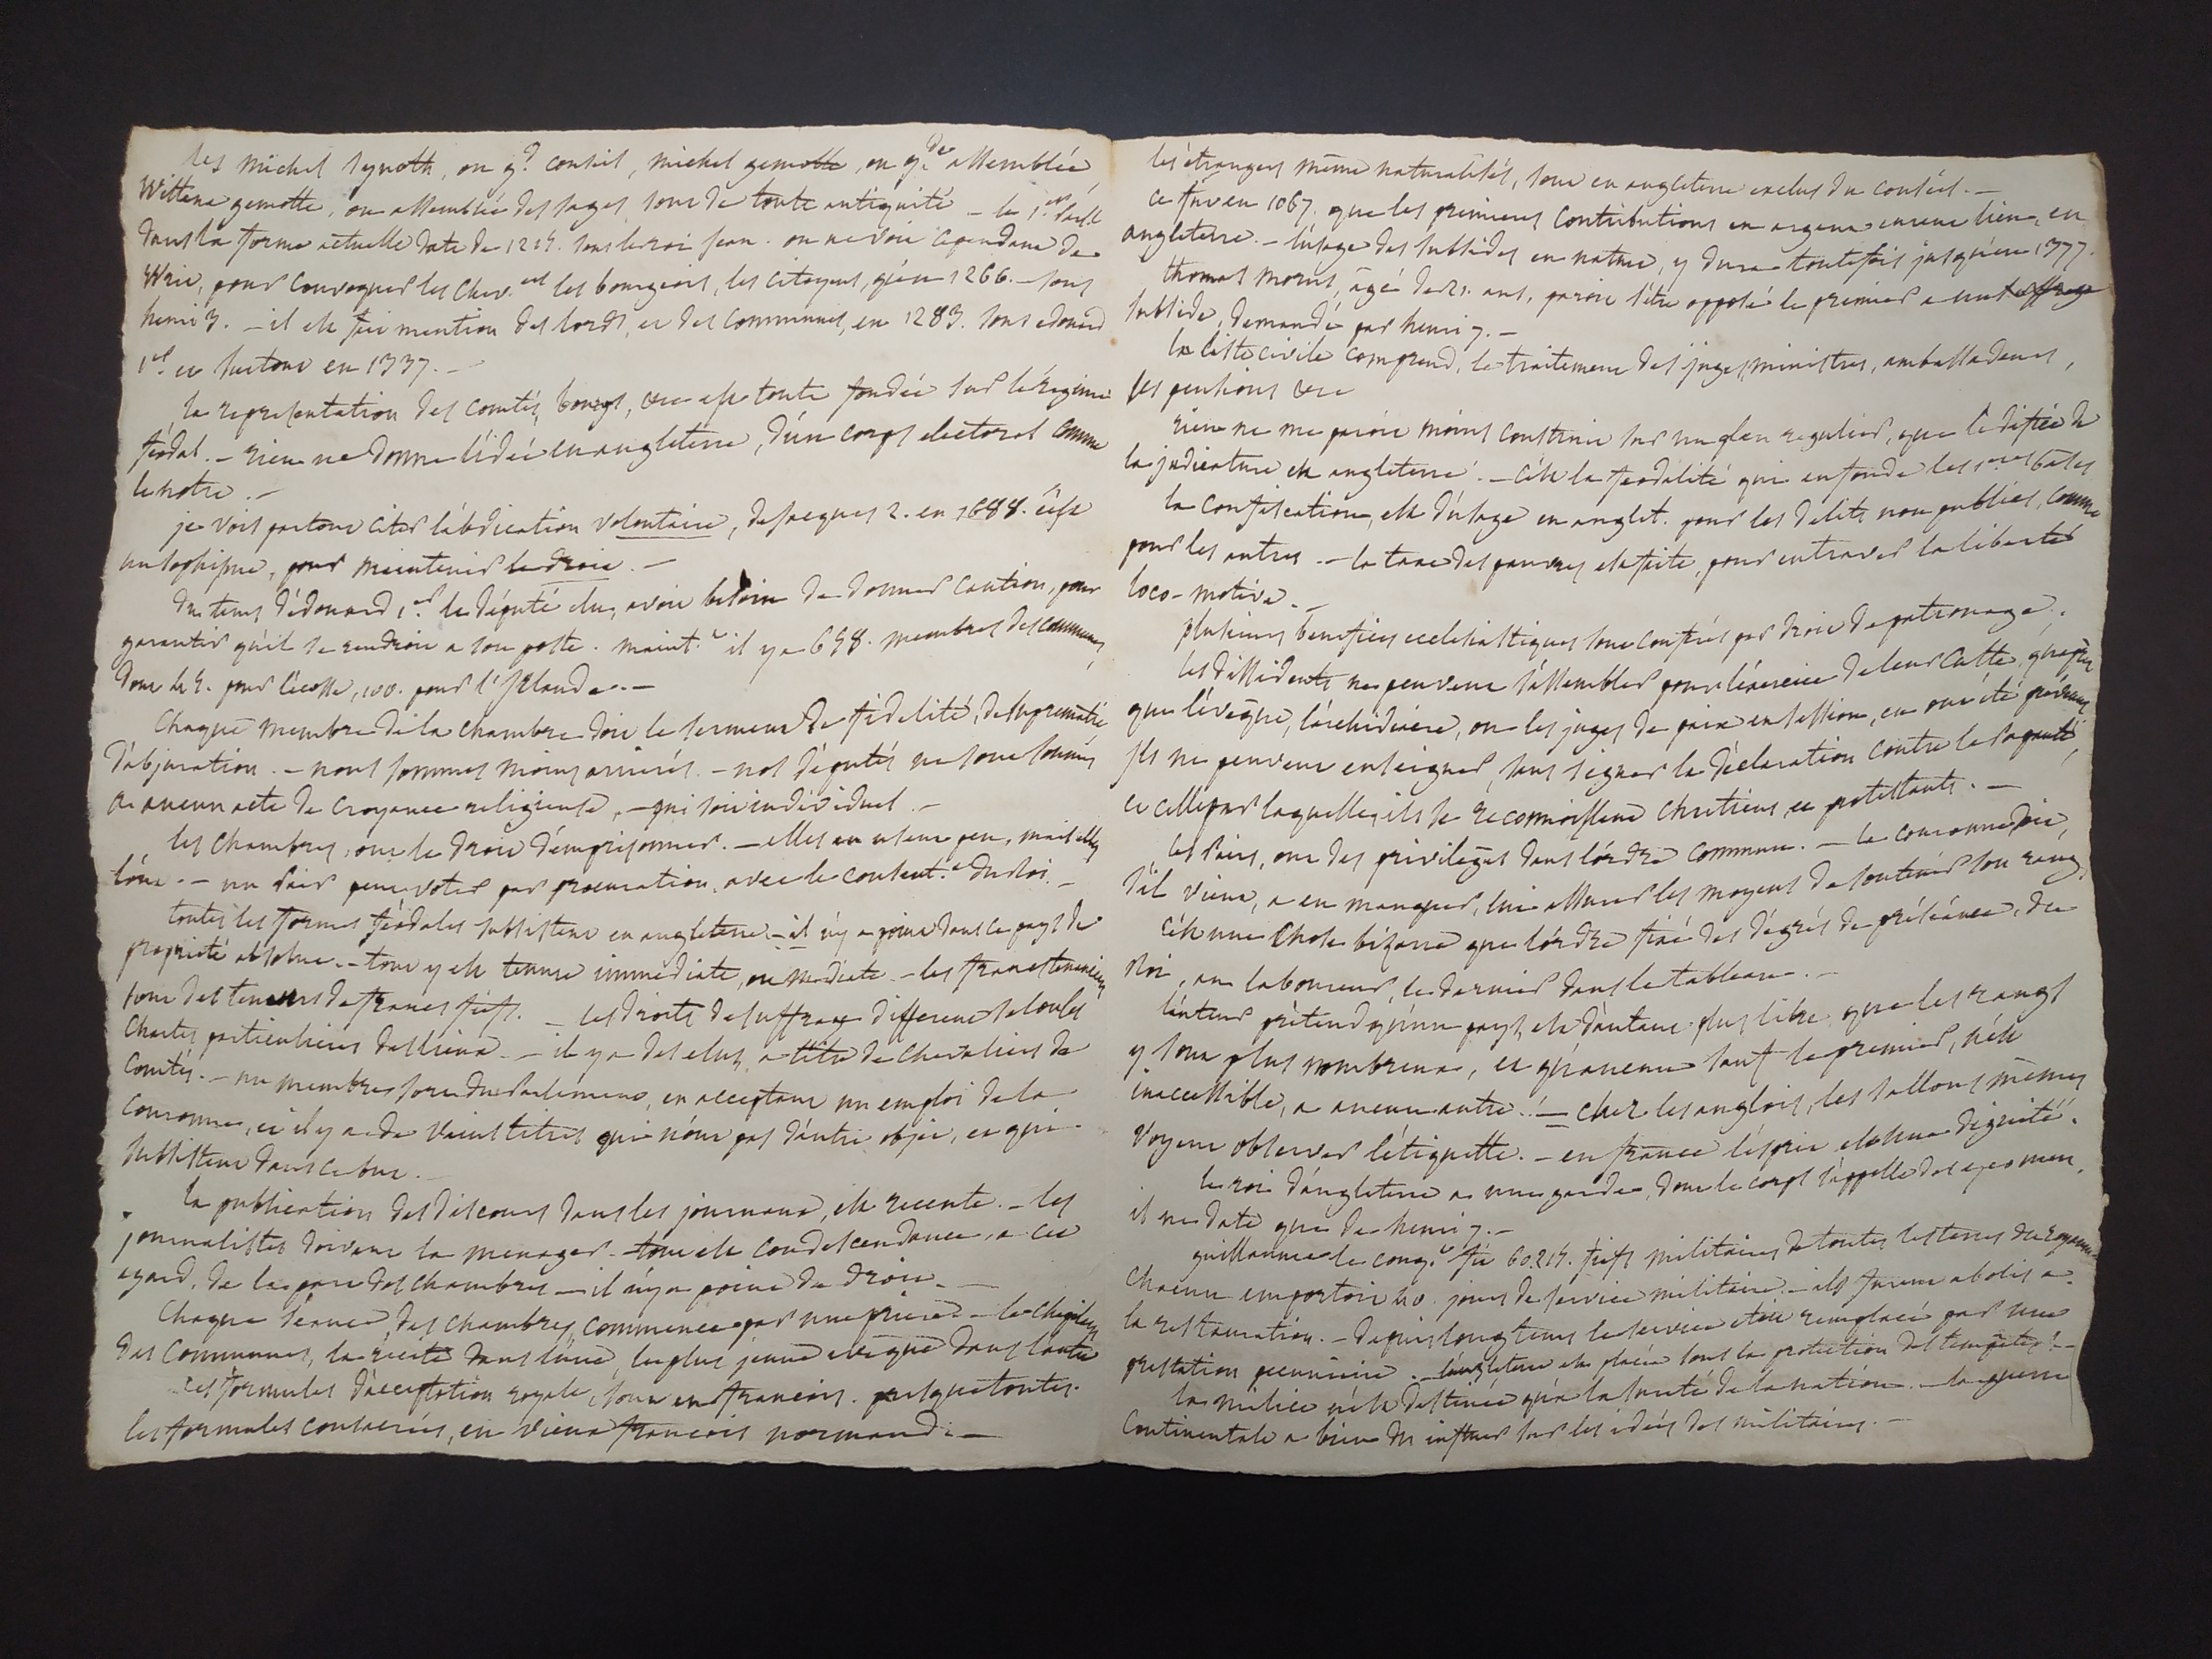 les michel synoth, ou g.d conseil, michel gemotte, ou g.de assemblée,
Wittena gemotte, ou assemblée des sages, sont de toute antiquité – le 1.er parl.t
dans la forme actuelle date de 1215. sous le roi jean. on ne voit cependant de
Writ, pour convoquer les chev.ers les bourgeois, les citoyens, qu'en 1266. – sous
henri 3. – il est fait mention des lords, et des communes, en 1283. sous edouard
1.er et surtout en 1337. –
la representation des comtés, bourgs, &c est toute fondée sur le régime
féodal. – rien ne donne l'idée en angleterre, d'un corps electoral comme
le notre. –
je vois partout citer l'abdication volontaire, de jacques 2. en 1688. c'est
un sophisme, pour maintenir le droit. –
du tems d'édouard 1.er le député élu, avoit besoin de donner caution, pour
garantir qu'il se rendroit a son poste. maint.t il y a 658. membres des communes,
dont 45. pour l'écosse, 100. pour l'Irlande. –
Chaque membre de la chambre doit le serment de fidelité, de suprematie
d'abjuration. – nous sommes moins arriérés. – nos députés ne sont soumis
a aucun acte de croyance religieuse, – qui soit individuel. –
les chambres, ont le droit d'emprisonner. – elles en usent peu, mais elles
l'ont. – un Pair peut voter par procuration, avec le consent.t du Roi. –
toutes les formes féodales subsistent en angleterre – il n'y a point dans ce pays de
propriété absolue. – tout y est tenure immédiate, ou médiate. – les francs tenanciers
sont des teneurs de francs fiefs. – les droits de suffrage different selon les
Chartes particulieres des lieux. – il y a des elus, a titre de chevaliers de
Comtés. – un membre sort du Parlement, en acceptant un emploi de la
couronne, et il y a de vieux titres qui n'ont pas d'autre objet, et qui
subsistent dans ce but. –
la publication des discours dans les journaux, est recente. – les
journalistes doivent la menager. tout est condescendance, a cet
egard, de la part des chambres – il n'y a point de droit. –
Chaque séance, des chambres, commence par une priere – le chapelain
des Communes, la recite dans l'une, le plus jeune evêque dans l'autre
les formules d'acceptation royale, sont en francois. presque toutes
les formules consacrées, en vieux francois normand. –
les étrangers même naturalisés, sont en angleterre exclus du conseil. –
ce fut en 1067. que les premieres contributions en argent eurent lieu, en
angleterre. – l'usage des subsides en nature, y dura toutefois jusqu'en 1377.
thomas morus, âgé de 21. ans, paroit s'être opposé le premier a un
subside, demandé par henri 7. –
la liste civile comprend, le traitement des juges, ministres, ambassadeurs,
les pensions &c
rien ne me paroit moins construit sur un plan regulier, que l'édifice de
la judicature en angleterre. – c'est la féodalité qui en fonde les 1.eres bases
la confiscation, est d'usage en anglet. pour les delits non publics, comme
pour les autres – la taxe des pauvres est faite, pour entraver la liberté
loco-motive. –
plusieurs benefices ecclesiastiques sont conférés par droit de patronage.
les dissidents ne peuvent s'assembler pour l'exercice de leur culte, qu'après
que l'évêque, l'archidiacre, ou les juges de paix en session, en ont été prévenus
Ils ne peuvent enseigner, sans signer la déclaration contre la Papauté,
et celle par laquelle, ils se reconnoissent chretiens, et protestants. –
les Pairs, ont des privilèges dans l'ordre commun. – la couronne doit,
s'il vient, a en manquer, lui assurer les moyens de soutenir son rang.
c'est une chose bizarre que l'ordre fixé des dégrés de préséance, du
Roi, au laboureur, le dernier dans le tableau. –
l'auteur prétend qu'un pays, est d'autant plus libre que les rangs
y sont plus nombreux, et qu'aucun sauf le premier, n'est
inaccessible, a aucun autre! – chez les anglois, les sallons mêmes
voyent observer l'étiquette. – en france l'esprit est une dignité.
le roi d'angleterre a une garde, dont le corps s'appelle des yeomen.
il ne date que de henri 7. –
guillaume le conq.t fit 60.215. fiefs militaires de toutes les terres du royaume
chacun emportoit 40. jours de service militaire. – ils furent abolis a
la restauration. – depuis longtems le service étoit remplacé par une
prestation pecuniaire. – l'angleterre est placée sous la protection des tempêtes! –
la milice n'est destinée qu'a la sureté de la nation. – la guerre
continentale a bien dû influer sur les idées des militaires. –